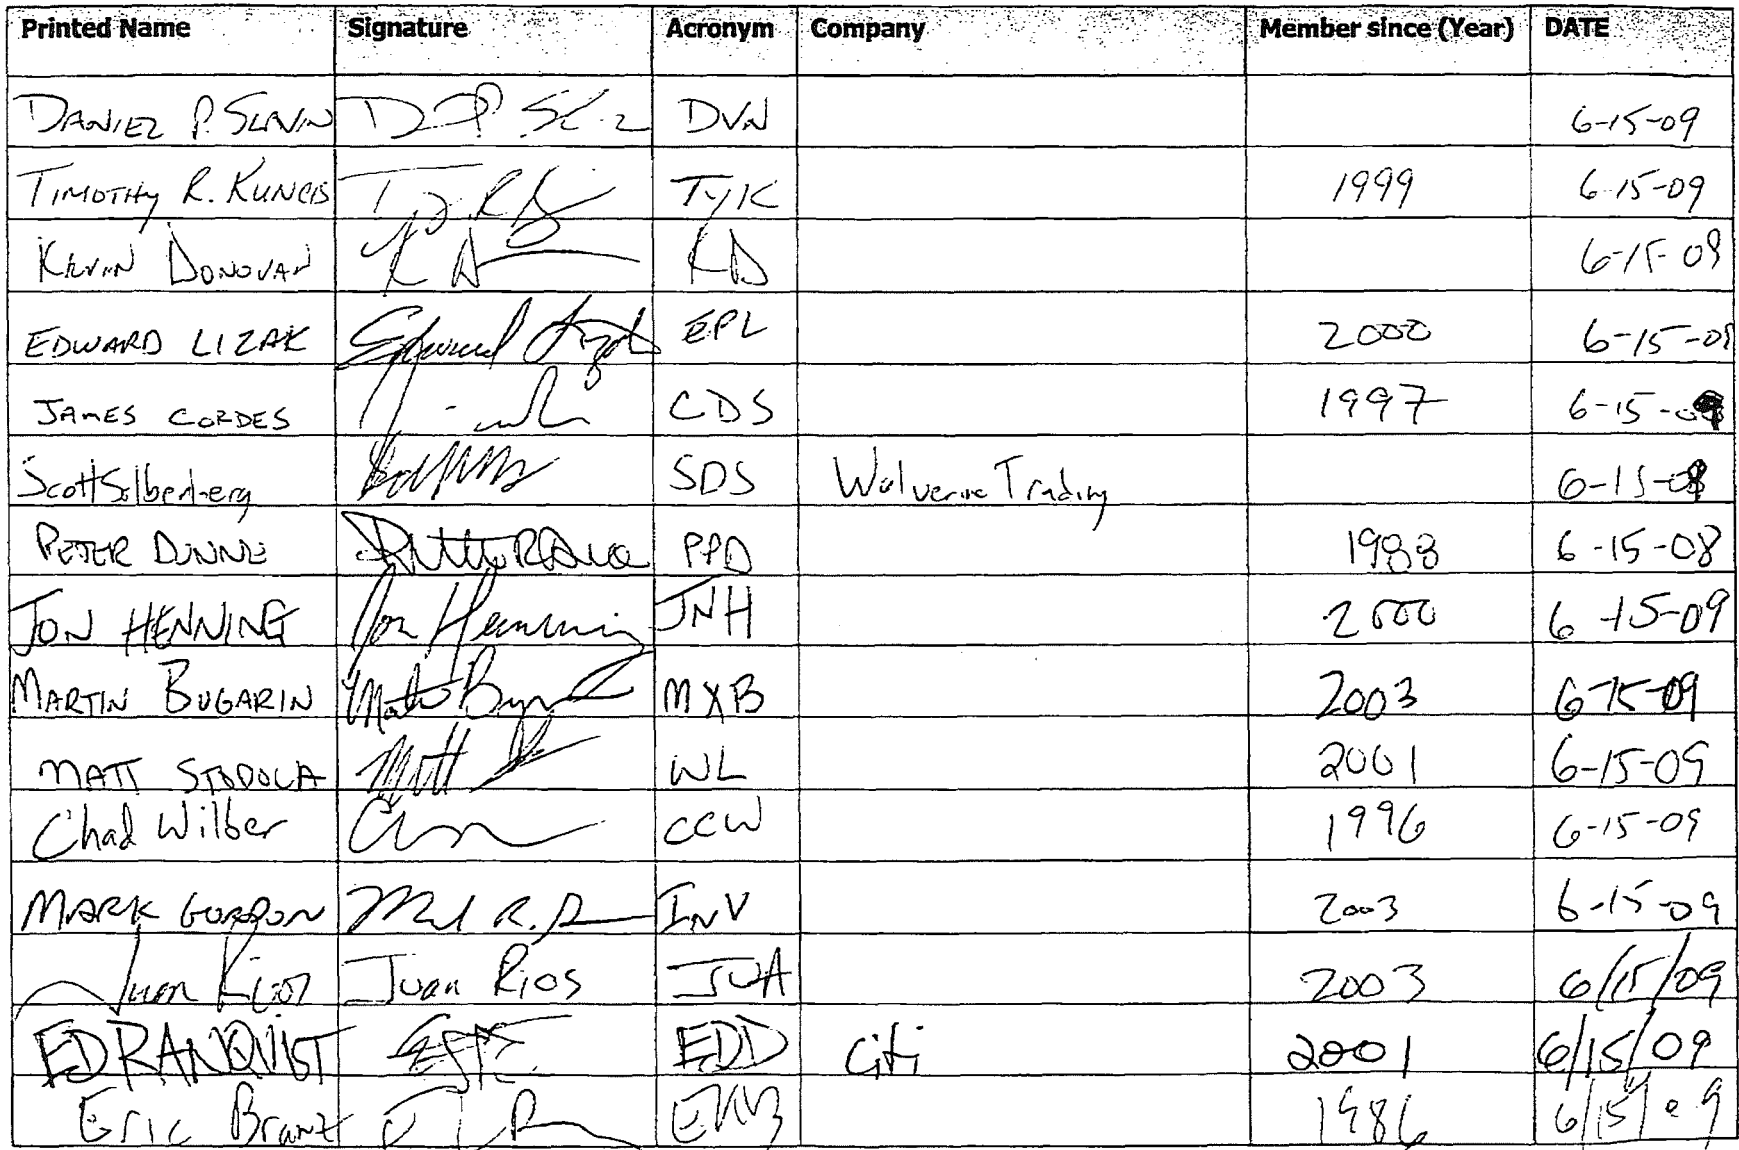 Printed Name Signature Acronym Company Member since (Year) DATE
DANIEL P. SLAVIN DVN 6-15-09
TIMOTHY R. KUNCIS TYK 1999 6-15-09
KEVIN DONOVAN KD 6-15-09
EDWARD LIZAK Edward Lizak EPL 2000 6-15-09
JAMES CORDES CDS 1997 6-15-09
Scott Silbenberg SDS Wolverine Trading 6-15-09
PETER DUNNE PPD 1988 6-15-08
JON HENNING Jon Henning JNH 2000 6-15-09
MARTIN BUGARIN MXB 2003 6-15-09
MATT STODOLA Matt WL 2001 6-15-09
Chad Wilber CCW 1996 6-15-09
MARK GORDON INV 2003 6-15-09
Juan Rios Juan Rios JUA 2003 6/15/09
ED RANQVIST EDD Citi 2001 6/15/09
Eric Branz 1986 6/15/09